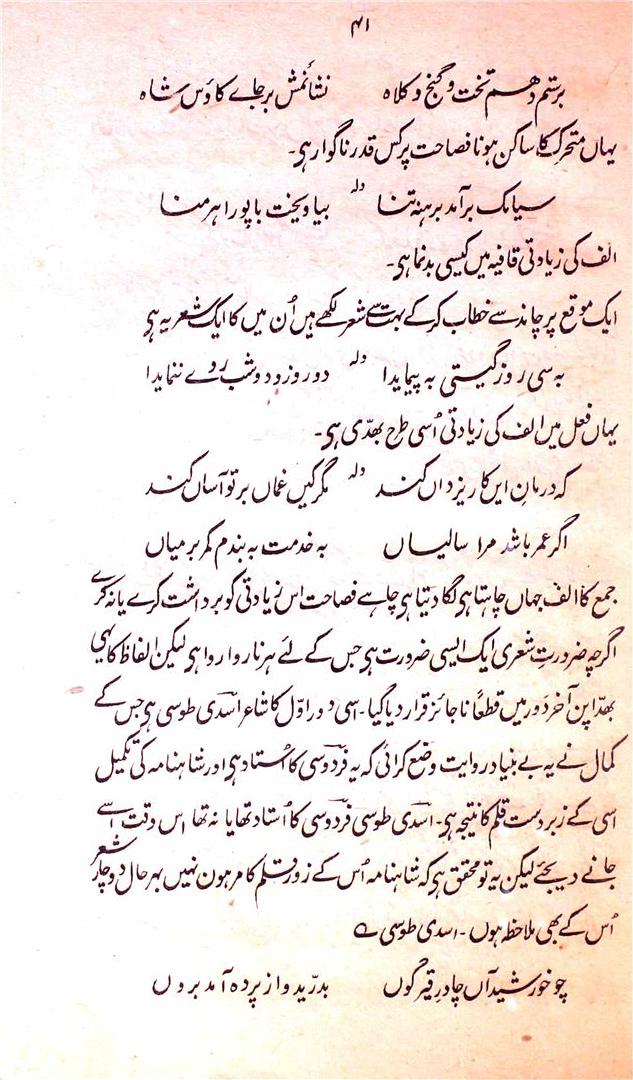 ۴۱
برستم دهم تخت و گنج و کلاہ نشانمش بر جاے کاؤس شاہ
یہاں متحرک کا ساکن ہونا فصاحت پر کس قدر ناگوار ہی۔
سیامک برآمد برہنہ تنا ولہ بیاویخت با پورا ہرمنا
الف کی زیادتی قافیہ میں کیسی بدنما ہی۔
ایک موقع پر چاند سے خطاب کرکے بہت سے شعر لکھے ہیں اُن میں کا ایک شعر یہ ہی
بہ سی روز گیتی بہ پیمایدا ولہ دو روز و دو شب روے ننمایدا
یہاں فعل میں الف کی زیادتی اُسی طرح بھدّی ہی۔
کہ درمانِ ایں کار یزداں کند ولہ مگر کیں غماں بر تو آساں کند
اگر عمر باشد مرا سالیاں بہ خدمت بہ بندم کمر بر میاں
جمع کا الف جہاں چاہتا ہی لگا دیتا ہی چاہے فصاحت اس زیادتی کو برداشت کرے یا نہ کرے
اگرچہ ضرورتِ شعری ایک ایسی ضرورت ہی جس کے لئے ہر ناروا روا ہی لیکن الفاظ کا یہی
بھدّا پن آخر دور میں قطعاً ناجائز قرار دیا گیا۔ اسی دور اوّل کا شاعر اسدی طوسی ہی جس کے
کمال نے یہ بے بنیاد روایت وضع کرائی کہ یہ فردوسی کا اُستاد ہی اور شاہنامہ کی تکمیل
اسی کے زبردست قلم کا نتیجہ ہی۔ اسدی طوسی فردوسی کا اُستاد تھا یا نہ تھا اس وقت اسے
جانے دیجئے لیکن یہ تو محقق ہی کہ شاہنامہ اُس کے زور قلم کا مرہون نہیں بہر حال دو چار شعر
اُس کے بھی ملاحظہ ہوں۔ اسدی طوسی ؎
چو خورشید آں چادرِ قیر گوں بدرّید و از پردہ آمد بروں